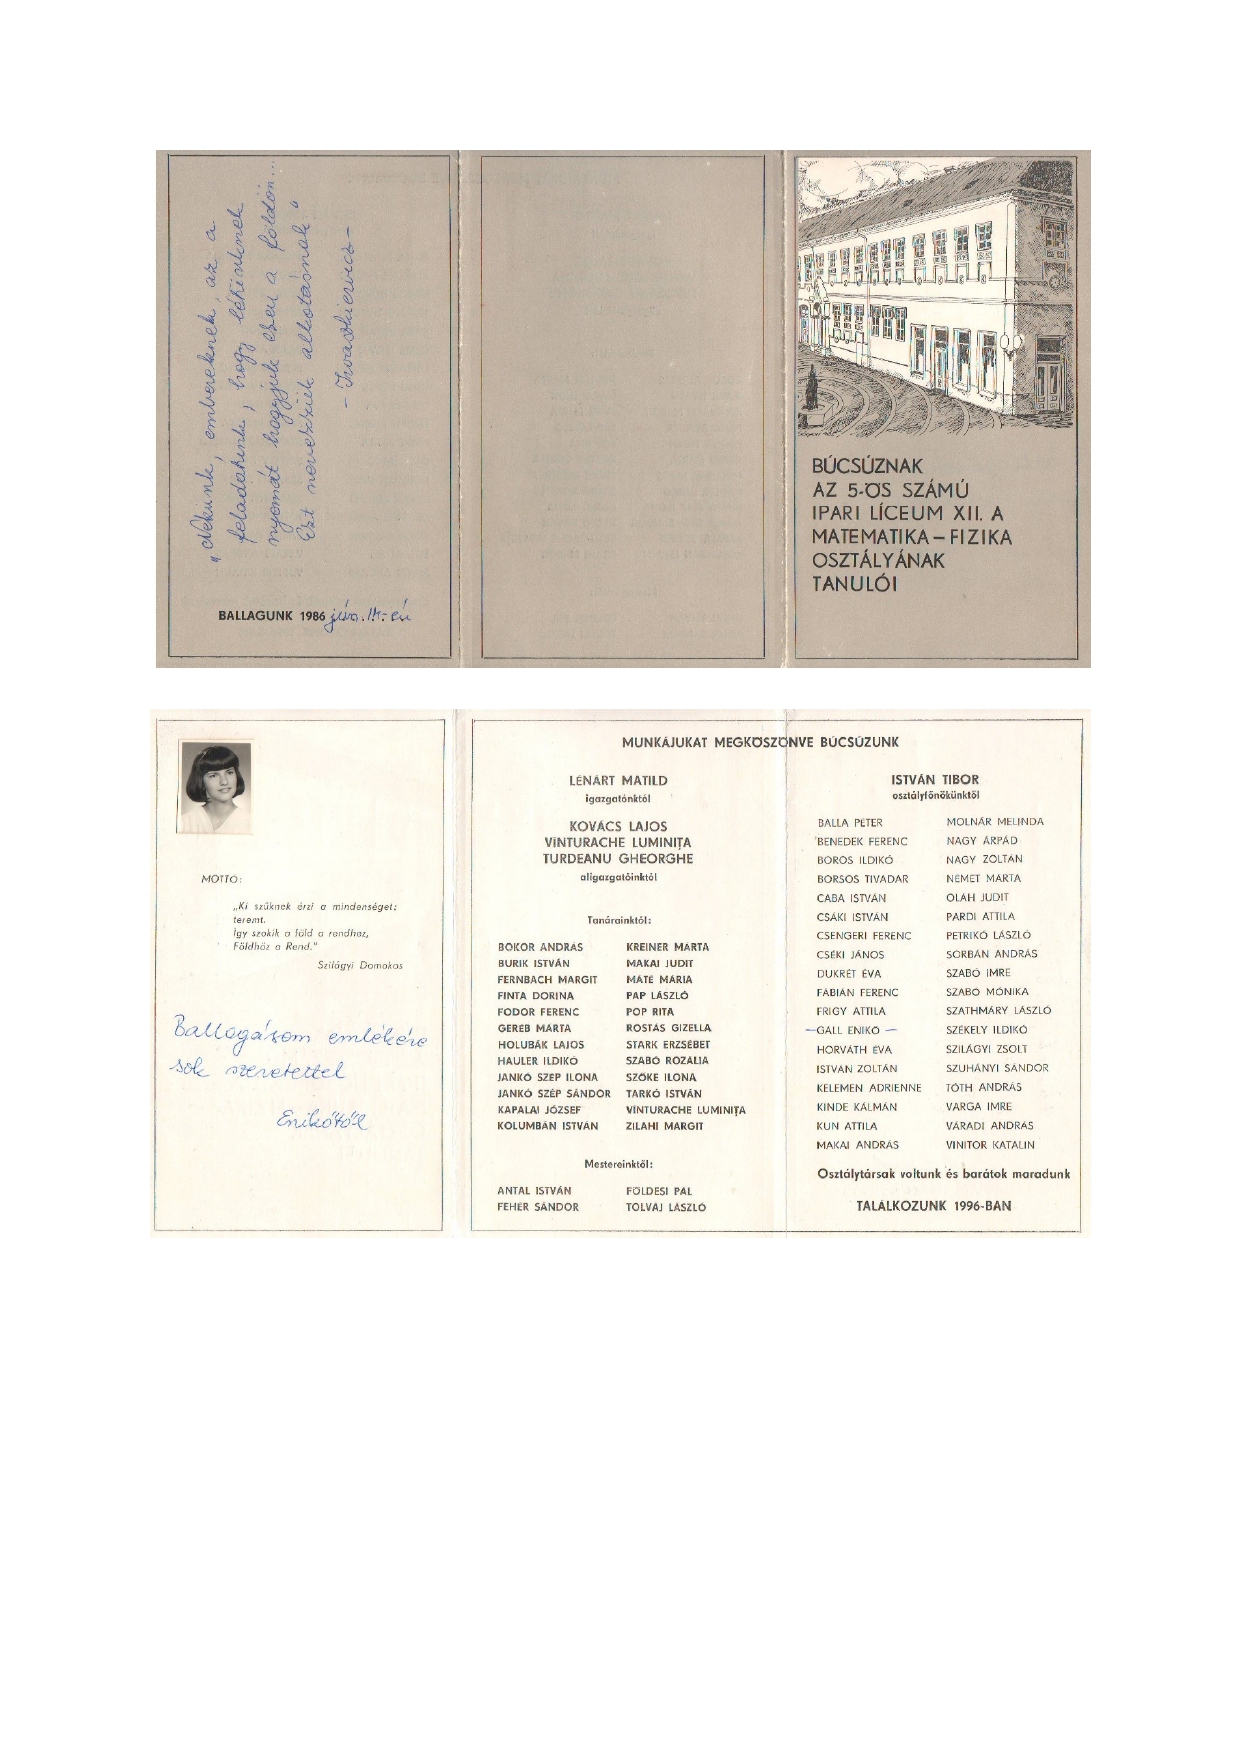 „Nekünk, embereknek, az a
feladatunk, hogy lelkünknek
nyomát hagyjuk ezen a földön...
Ezt nevezzük alkotásnak."
- Iwaszkievicz -
BALLAGUNK 1986 jún. 14-én
BÚCSÚZNAK
AZ 5-ÖS SZÁMÚ
IPARI LÍCEUM XII. A
MATEMATIKA – FIZIKA
OSZTÁLYÁNAK
TANULÓI
MOTTÓ:
„Ki szűknek érzi a mindenséget:
teremt.
Így szokik a föld a rendhez,
Földhöz a Rend."
Szilágyi Domokos
Ballagásom emlékére
sok szeretettel
Enikőtől
MUNKÁJUKAT MEGKÖSZÖNVE BÚCSÚZUNK
LÉNÁRT MATILD
igazgatónktól
KOVÁCS LAJOS
VINTURACHE LUMINIȚA
TURDEANU GHEORGHE
aligazgatóinktól
Tanárainktól:
BOKOR ANDRÁS KREINER MÁRTA
BURIK ISTVÁN MAKAI JUDIT
FERNBACH MARGIT MÁTÉ MÁRIA
FINTA DORINA PAP LÁSZLÓ
FODOR FERENC POP RITA
GERÉB MÁRTA ROSTÁS GIZELLA
HOLUBÁK LAJOS STARK ERZSÉBET
HAULER ILDIKÓ SZABÓ ROZÁLIA
JANKÓ SZÉP ILONA SZŐKE ILONA
JANKÓ SZÉP SÁNDOR TARKÓ ISTVÁN
KAPALAI JÓZSEF VINTURACHE LUMINIȚA
KOLUMBÁN ISTVÁN ZILAHI MARGIT
Mestereinktől:
ANTAL ISTVÁN FÖLDESI PÁL
FEHÉR SÁNDOR TOLVAJ LÁSZLÓ
ISTVÁN TIBOR
osztályfőnökünktől
BALLA PÉTER MOLNÁR MELINDA
BENEDEK FERENC NAGY ÁRPÁD
BOROS ILDIKÓ NAGY ZOLTÁN
BORSOS TIVADAR NÉMET MÁRTA
CABA ISTVÁN OLÁH JUDIT
CSÁKI ISTVÁN PARDI ATTILA
CSENGERI FERENC PETRIKÓ LÁSZLÓ
CSÉKI JÁNOS SORBÁN ANDRÁS
DUKRÉT ÉVA SZABÓ IMRE
FÁBIÁN FERENC SZABÓ MÓNIKA
FRIGY ATTILA SZATHMÁRY LÁSZLÓ
— GÁLL ENIKŐ — SZÉKELY ILDIKÓ
HORVÁTH ÉVA SZILÁGYI ZSOLT
ISTVÁN ZOLTÁN SZUHÁNYI SÁNDOR
KELEMEN ADRIENNE TÓTH ANDRÁS
KINDE KÁLMÁN VARGA IMRE
KUN ATTILA VÁRADI ANDRÁS
MAKAI ANDRÁS VINITOR KATALIN
Osztálytársak voltunk és barátok maradunk
TALÁLKOZUNK 1996-BAN